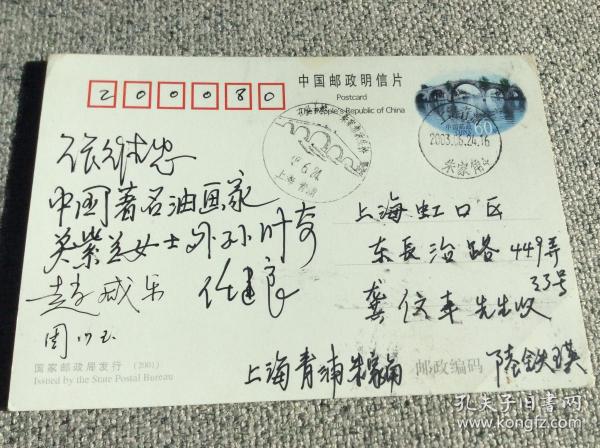 200080
中国邮政明信片
Postcard
The People's Republic of China
中国邮政
60
2003.06.24.16
朱家角
上海青浦
中国著名油画家
吴紫兰女士外孙叶奇
赵成乐 任建良
周
上海虹口区
东長治路449弄
33号
龚 先生收
国家邮政局发行 (2001)
Issued by the State Postal Bureau
上海青浦朱家角
邮政编码
陆铁瑛
孔夫子旧书网
www.kongfz.com